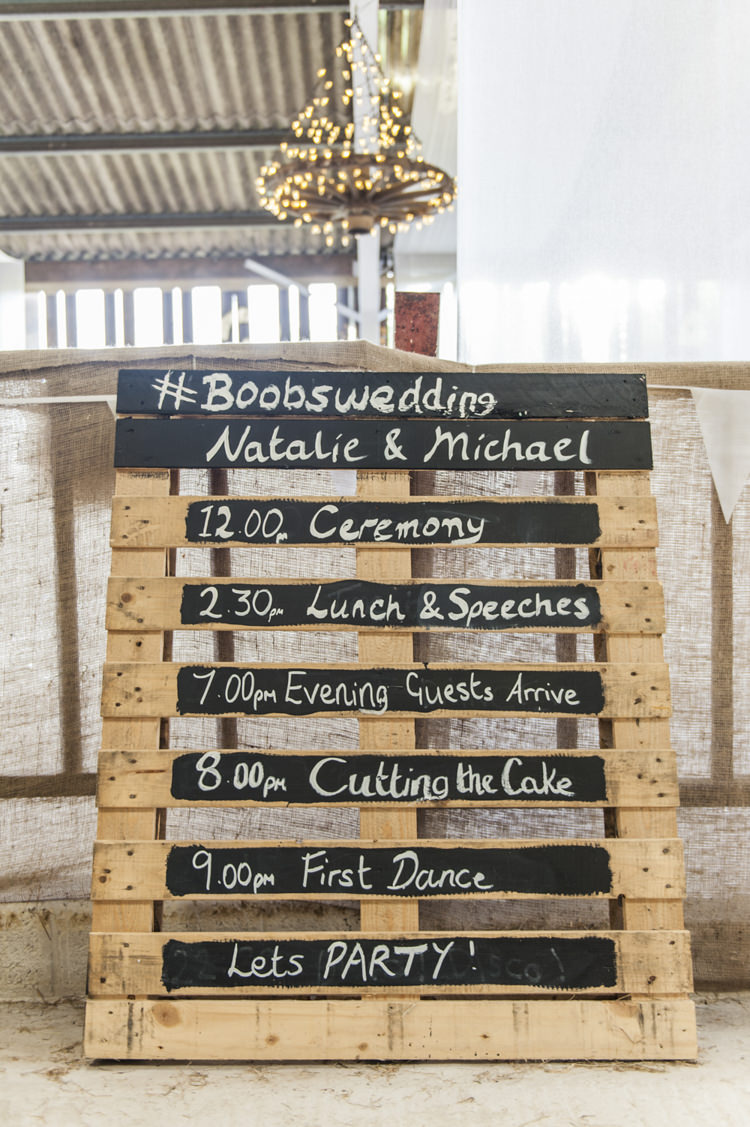 #Boobswedding
Natalie & Michael
12.00pm Ceremony
2.30pm Lunch & Speeches
7.00pm Evening Guests Arrive
8.00pm Cutting the Cake
9.00pm First Dance
Lets PARTY!